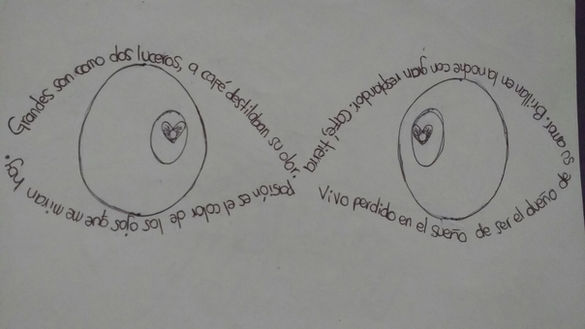 Grandes son como dos luceros, a café destilaban su olor.
Vivo perdido en el sueño de ser el dueño de
su amor. Brillan en la noche con gran resplandor: café, tierra
pasión es el color de los ojos que me miran hoy.